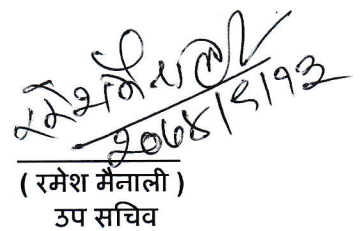 रमेश मैनाली
२०७४/९/१३
( रमेश मैनाली )
उप सचिव